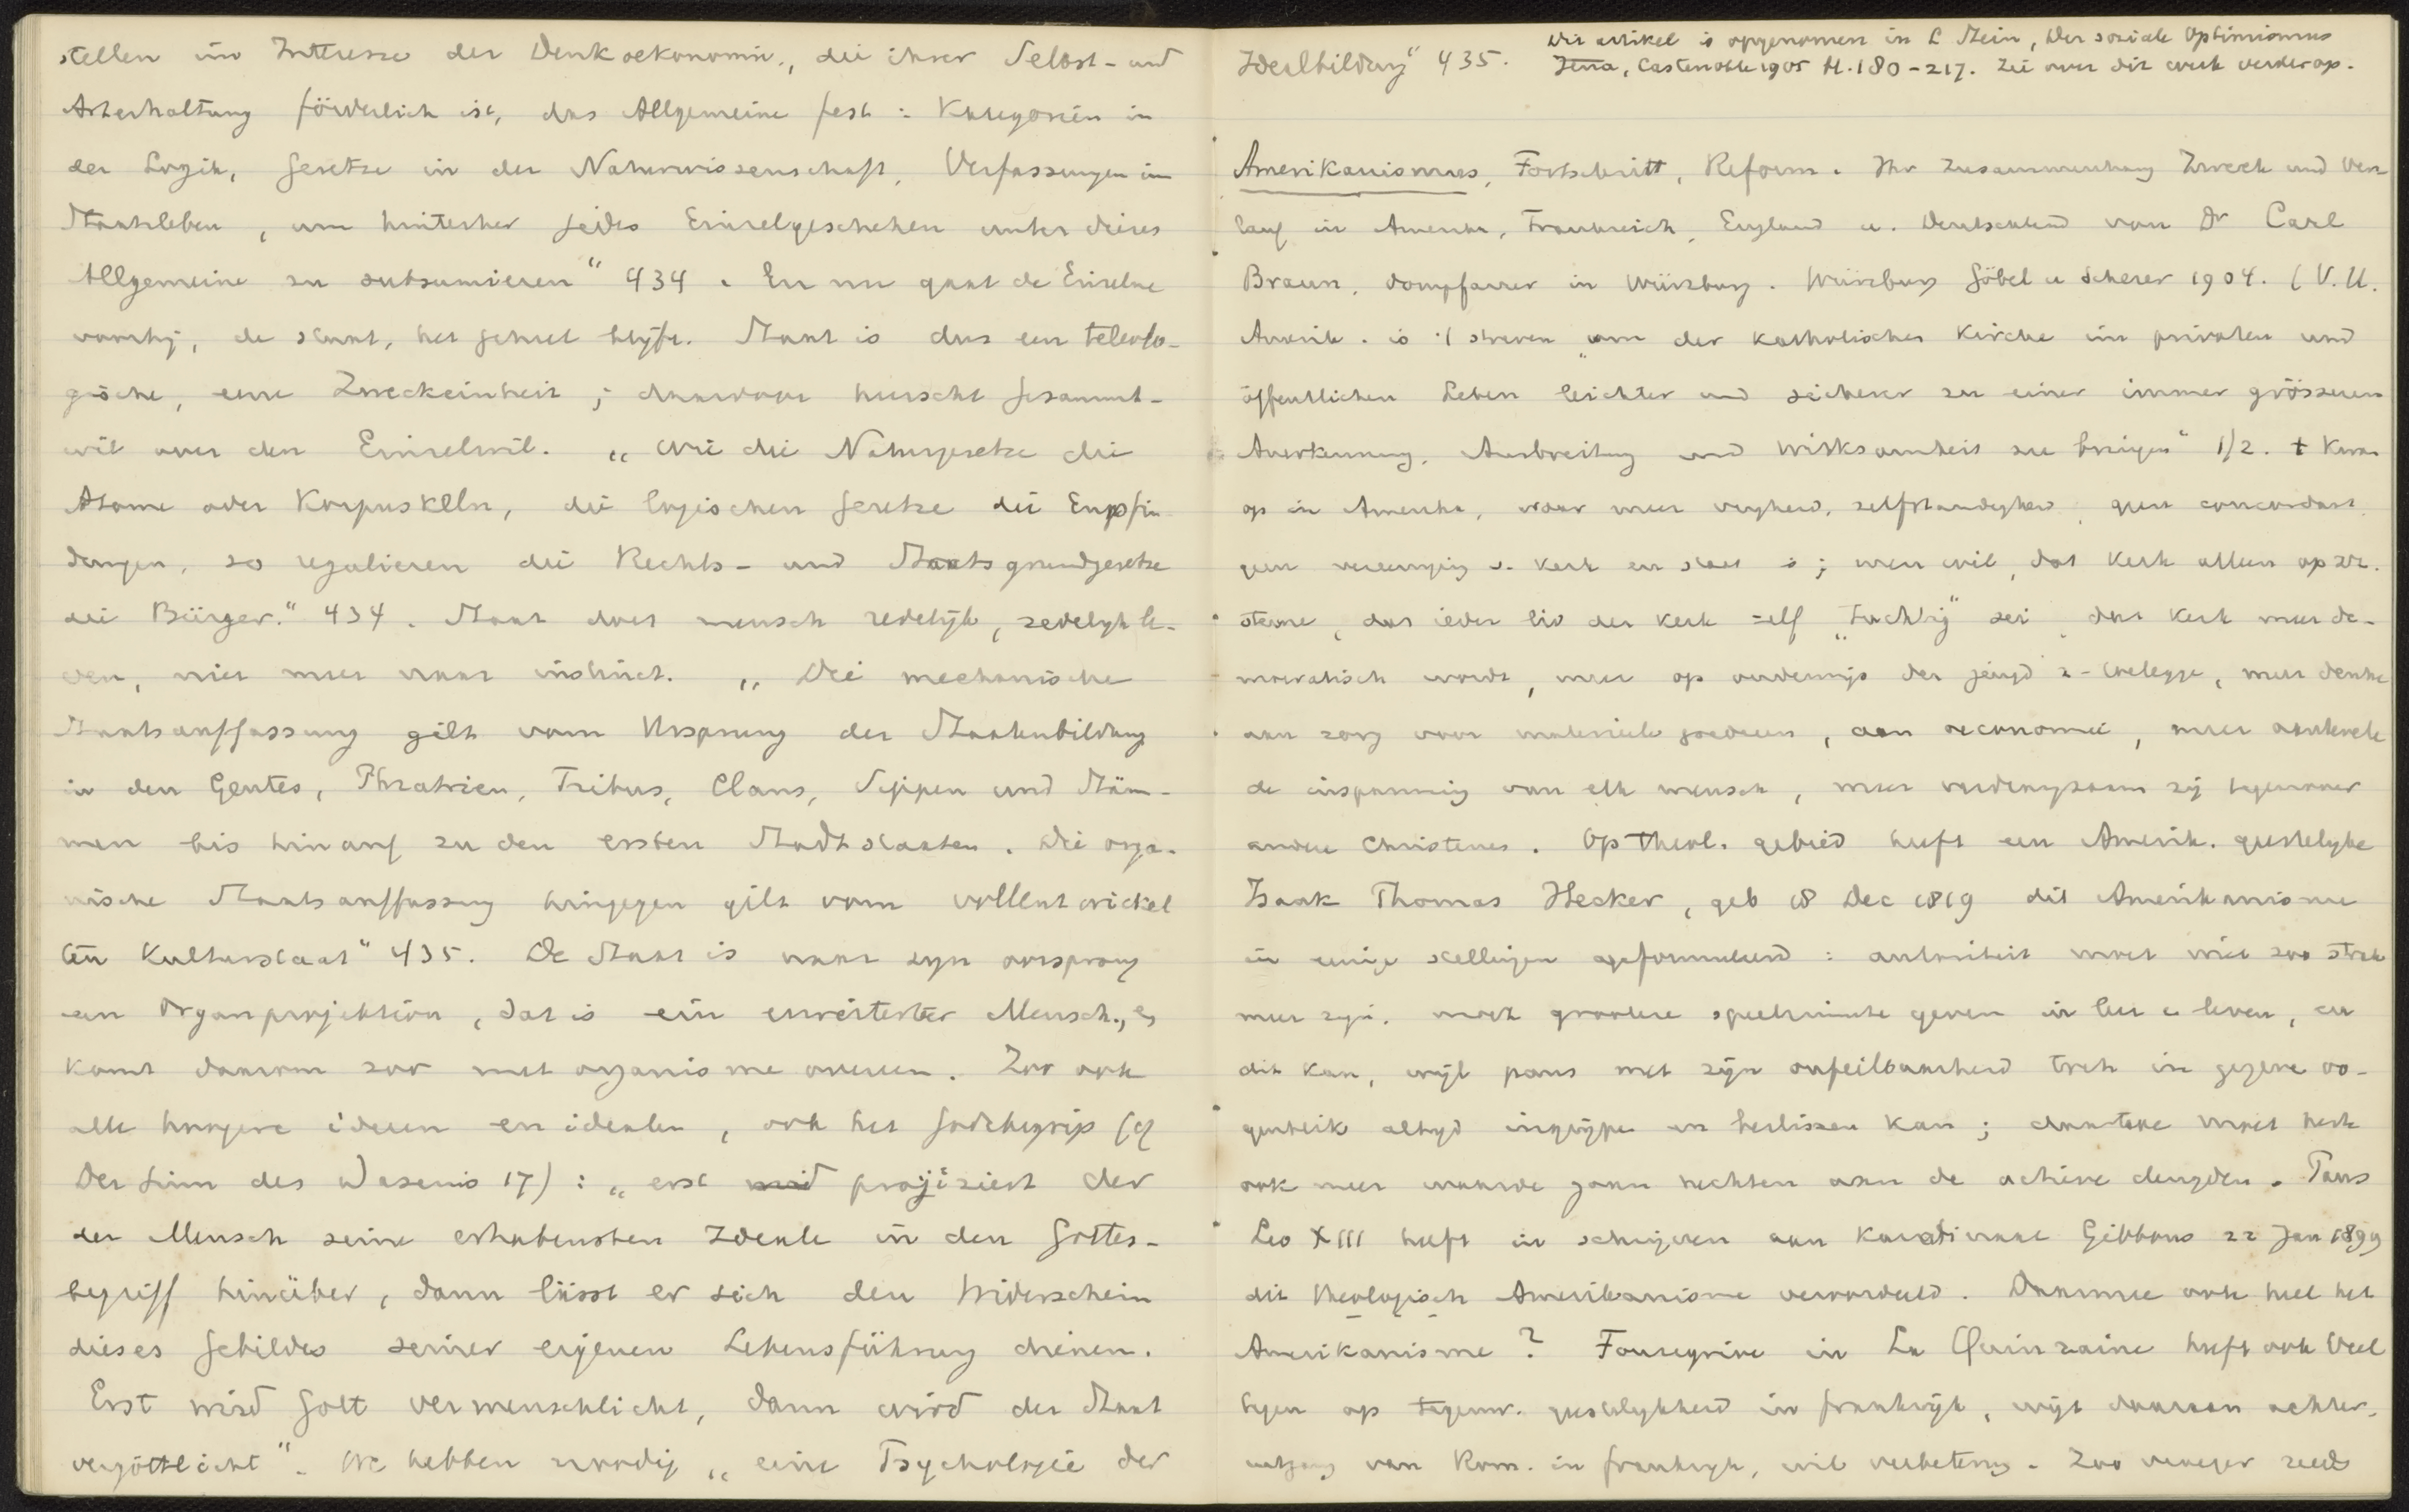 stellen im Interesse der Denkoekonomie, die ihrer Selbst- und
Arterhaltung förderlich ist, das Allgemeine fest: Kategorien in
der Logik, Gesetze in der Naturwissenschaft, Verfassungen im
Staatsleben, um hinterher jedes Einzelgeschehen unter dieses
Allgemeine zu subsumieren" 434. En nu gaat de Einzelne
voorbij, de staat, het geheel blijft. Staat is dus een teleolo-
gische, eene Zweckeinheit; daarvoor heerscht Gesammt-
wil over den Einzelwil. „Wie die Naturgesetze die
Atome oder Korpuskeln, die logischen Gesetze die Empfin-
dungen, so regulieren die Rechts- und Staatsgrundgesetze
die Bürger." 434. Staat doet mensch redelijk, zedelijk le-
ven, niet meer naar instinct. „Die mechanische
Staatsauffassung gilt vom Ursprung der Staatenbildung
in den Gentes, Phratrien, Tribus, Clans, Sippen und Stäm-
men bis hinauf zu den ersten Stadtstaaten. Die orga-
nische Staatsauffassung hingegen gilt vom vollentwickel
ten Kulturstaat" 435. De Staat is naar zijn oorsprong
een Organprojektion, dat is ein erweiterter Mensch, en
komt daarom zoo met organisme overeen. Zoo ook
alle hoogere ideeen en idealen, ook het Godsbegrip (cf
Der Sinn des Daseins 17): „erst projiziert der
der Mensch seine erhabensten Ideale in den Gottes-
begriff hinüber, dann lässt er sich den Widerschein
dieses Gebildes seiner eigenen Lebensführung dienen.
Erst wird Gott vermenschlicht, dann wird der Staat
vergöttlicht". We hebben noodig „eine Psychologie der
Idealbildung" 435.
Dit artikel is opgenomen in L Stein, Der soziale Optimismus
Jena, Costenoble 1905 bl. 180-217. Zie over dit werk verderop.
Amerikanismus, Fortschritt, Reform. Ihr Zusammenhang Zweck und Ver
lauf in Amerika, Frankreich, England u. Deutschland von Dr Carl
Braun, Dompfarrer in Würzburg. Würzburg Göbel u Scherer 1904. (V.U.
Amerik. is 't streven „um der katholischen Kirche im privaten und
öffentlichen Leben leichter und sicherer zu einer immer grösseren
Anerkennung, Ausbreitung und Wirksamkeit zu bringen" 1/2. + Kwam
op in Amerika, waar meer vrijheid, zelfstandigheid, geen concordaat,
geen vereeniging v. kerk en staat is; men wil, dat kerk alleen op zr.
steune, dat ieder lid der kerk zelf „tüchtig" zei, dat kerk meer de-
mocratisch wordt, meer op onderwijs der jeugd z. toelegge, meer denke
aan zorg voor materieele goederen, aan oeconomie, meer aankweke
de inspanning van elk mensch, meer verdraagzaam zij tegenover
andere Christenen. Op theol. gebied heeft een Amerik. geestelijke
Isaak Thomas Hecker, geb 18 Dec 1819 dit Amerikanisme
in eenige stellingen geformuleerd: autoriteit moet niet zoo strak
meer zijn, moet grootere speelruimte geven in leer en leven, en
dit kan, wijl paus met zijn onfeilbaarheid toch in gegeven oo-
genblik altijd ingrijpen en beslissen kan; daarteve moet kerk
ook meer waarde gaan hechten aan de active deugden. Paus
Leo XIII heeft in schrijven aan Kardinaal Gibbons 22 Jan 1899
dit theologisch Amerikanisme veroordeeld. Daarmee ook heel het
Amerikanisme? Fonsegrive in La Quinzaine heeft ook veel
tegen op tegenw. geestelijkheid in Frankrijk, wijt daaraan achter-
uitgang van Rom. in Frankrijk, wil verbetering. Zoo vroeger reeds